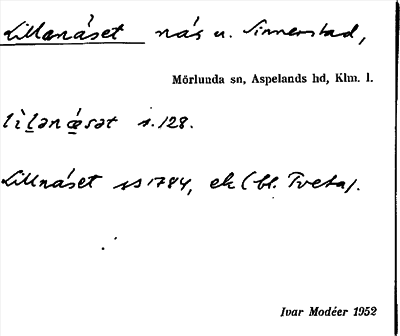 Lillanäset näs u. Sinnerstad,
Mörlunda sn, Aspelands hd, Klm. l.
lìlənǽsət s. 128.
Lillnäset ss 1784, ek (bl. Tveta).
Ivar Modéer 1952